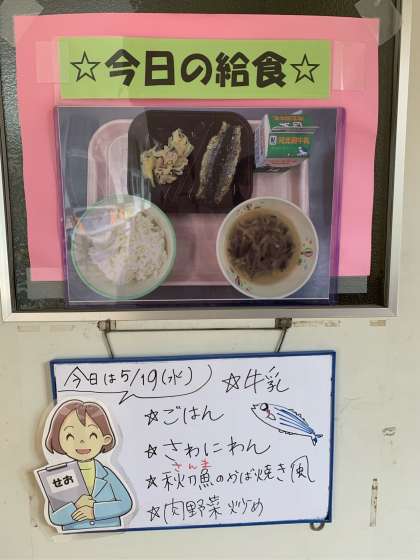 ☆今日の給食☆
今日は5/19(水)
☆牛乳
☆ごはん
☆さわにわん
さんま
☆秋刀魚のかば焼き風
☆肉野菜炒め
せお